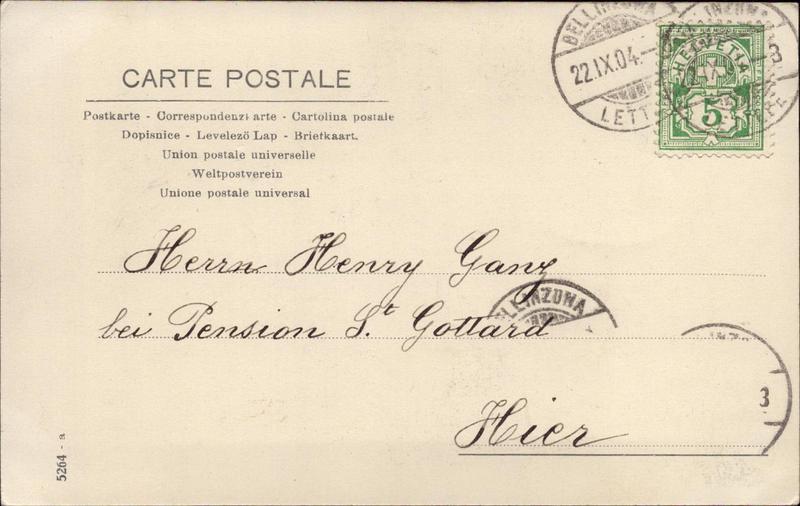 BELLINZONA
22.IX.04.
LETT
INZONA
3
HELVETIA
5
CARTE POSTALE
Postkarte - Correspondenzkarte - Cartolina postale
Dopisnice - Levelezö Lap - Briefkaart.
Union postale universelle
Weltpostverein
Unione postale universal
Herrn Henry Ganz
BELLINZONA
bei Pension St Gottard
INZO
3
Hier
5264 - a